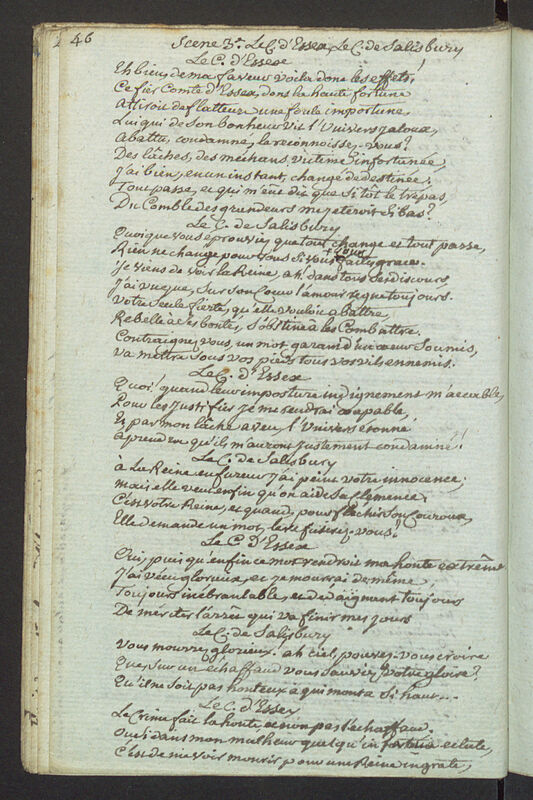 46
Scene 3.e Le C. d'Essex, Le C. de Salisbury
Le C. d'Essex
Eh bien, de ma faveur voila donc les effets!
Ce fier Comte d'Essex, dont la haute fortune
Attiroit de flatteurs une foule importune,
Lui qui de son bonheur vit l'Univers jaloux,
Abattu, condamné, le reconnoissez-vous?
Des lâches, des méchans, victime infortunée,
J'ai bien, en un instant, changé de destinée;
Tout passe, et qui m'eût dit que si tôt le trépas,
Du Comble des grandeurs me jeteroit si bas?
Le C. de Salisbury
Quoique vous éprouviez que tout change et tout passe,
Rien ne change pour vous si vous + vous faites grace.
Je viens de voir la Reine, ah! dans tous ses discours,
J'ai vu que, sur son Coeur l'amour regne toujours.
Votre seule fierté, qu'elle voulu abattre,
Rebelle à ses bontés, s'obstine à les Combattre.
Contraignez vous, un mot, garant d'un coeur soumis,
Va mettre sous vos pieds tous vos vils ennemis.
Le C. d'Essex
Quoi! quand leur imposture indignement m'accable,
Pour les justifier je me rendrai coupable,
Et par mon lâche aveu, l'Univers étonné
Aprendra qu'ils m'auront justement condamné!!
Le C. de Salisbury
à La Reine en fureur j'ai peint votre innocence;
mais elle veut enfin qu'on aide sa clemence,
C'est votre Reine, et quand, pour fléchir son Couroux,
Elle demande un mot, le refuserez-vous!
Le C. D'Essex
Oui, puisqu'enfin ce mot rendroit ma honte extrême
J'ai vécu glorieux, et je mourrai de même;
Toujours inebranlable, et dedaignant toujours
De mériter l'arrêt qui va finir mes jours
Le C. de Salisbury
Vous mourrez glorieux. ah ciel, pouvez-vous croire
Que, sur un échaffaud vous sauviez votre gloire?
Qu'il ne soit pas honteux à qui monta si haut...
Le C. d'Essex
Le Crime fait la honte et non pas l'échaffaud.
Ou si dans mon malheur quelqu'in éclate,
C'est de me voir mourir pour une Reine ingrate,